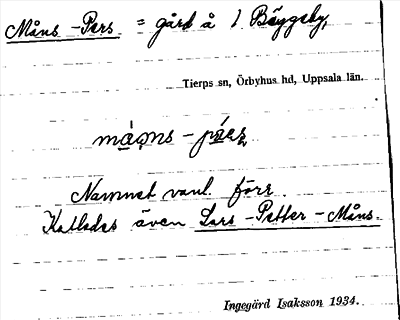 Måns-Pers = gård å 1 Böggeby,
Tierps sn, Örbyhus hd, Uppsala län.
Namnet vanl. förr.
Kallades även Lars-Petter-Måns.
Ingegärd Isaksson 1934.